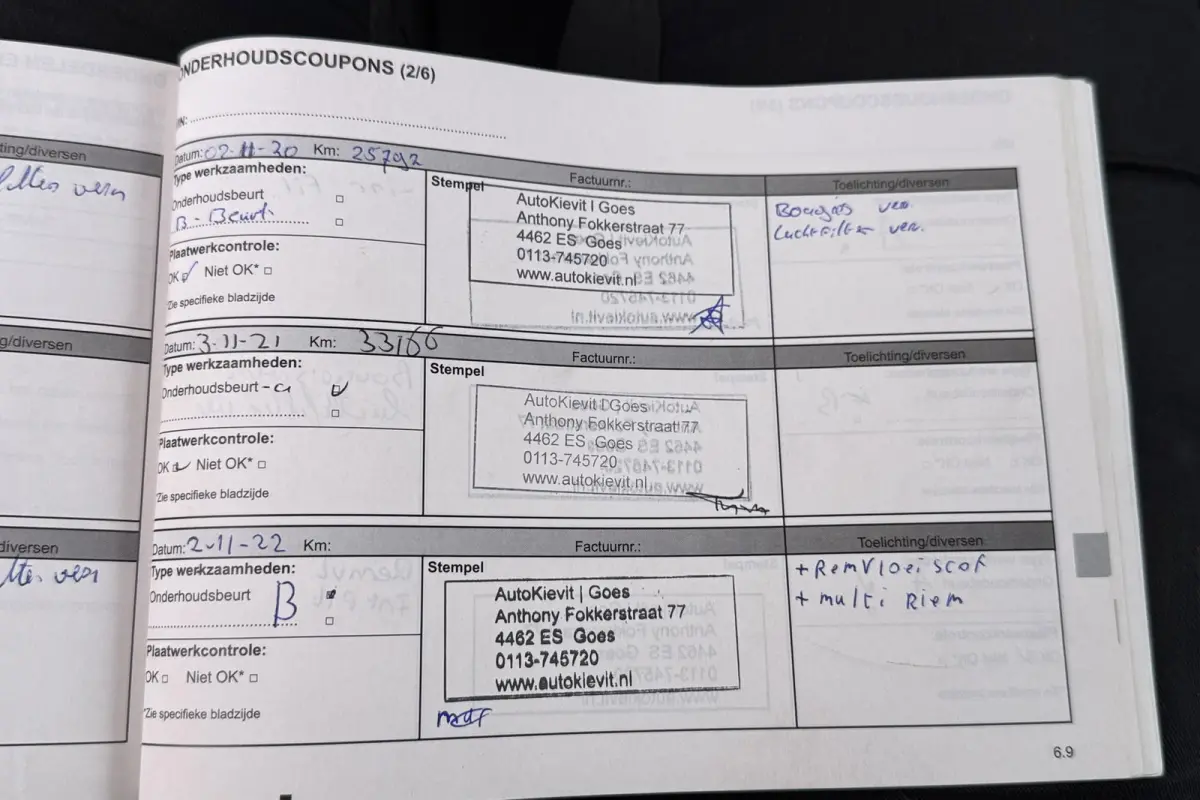 ONDERHOUDSCOUPONS (2/6)
ting/diversen
VIN:
Datum: 02-11-20 Km: 25792
Type werkzaamheden:
Onderhoudsbeurt
B-Beurt
Plaatwerkcontrole:
OK Niet OK*
*Zie specifieke bladzijde
Stempel
Factuurnr.:
AutoKievit | Goes
Anthony Fokkerstraat 77
4462 ES Goes
0113-745720
www.autokievit.nl
Toelichting/diversen
Bougies ver.
Luchtfilter ver.
g/diversen
Datum: 3-11-21 Km: 33166
Type werkzaamheden:
Onderhoudsbeurt
Plaatwerkcontrole:
OK Niet OK*
*Zie specifieke bladzijde
Stempel
Factuurnr.:
AutoKievit | Goes
Anthony Fokkerstraat 77
4462 ES Goes
0113-745720
www.autokievit.nl
Toelichting/diversen
diversen
Datum: 2-11-22 Km:
Type werkzaamheden:
Onderhoudsbeurt B
Plaatwerkcontrole:
OK Niet OK*
*Zie specifieke bladzijde
Stempel
Factuurnr.:
AutoKievit | Goes
Anthony Fokkerstraat 77
4462 ES Goes
0113-745720
www.autokievit.nl
Toelichting/diversen
+ Remvloeiscof
+ multi Riem
6.9